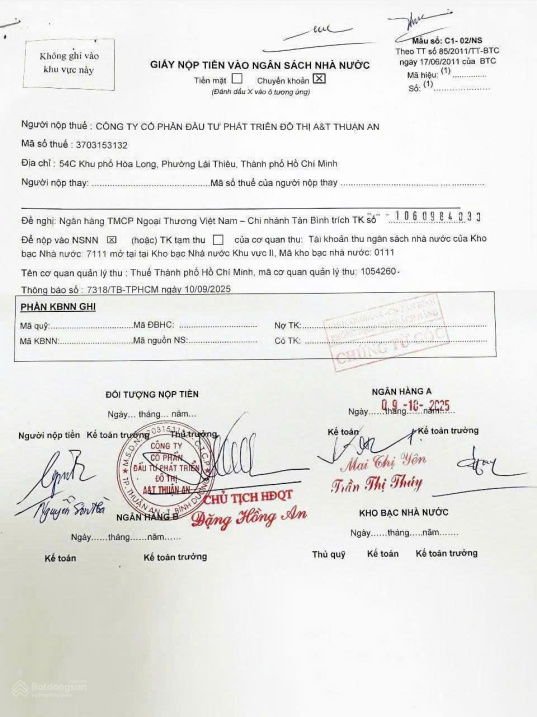 Không ghi vào
khu vực này
GIẤY NỘP TIỀN VÀO NGÂN SÁCH NHÀ NƯỚC
Tiền mặt ☐ Chuyển khoản ☒
(Đánh dấu X vào ô tương ứng)
Mẫu số: C1- 02/NS
Theo TT số 85/2011/TT-BTC
ngày 17/06/2011 của BTC
Mã hiệu: (1)
Số: (1)
Người nộp thuế : CÔNG TY CỔ PHẦN ĐẦU TƯ PHÁT TRIỂN ĐÔ THỊ A&T THUẬN AN
Mã số thuế : 3703153132
Địa chỉ : 54C Khu phố Hòa Long, Phường Lái Thiêu, Thành phố Hồ Chí Minh
Người nộp thay: Mã số thuế của người nộp thay
Đề nghị: Ngân hàng TMCP Ngoại Thương Việt Nam – Chi nhánh Tân Bình trích TK số 1060984033
Để nộp vào NSNN ☒ (hoặc) TK tạm thu ☐ của cơ quan thu: Tài khoản thu ngân sách nhà nước của Kho
bạc Nhà nước: 7111 mở tại tại Kho bạc Nhà nước Khu vực II, Mã kho bạc nhà nước: 0111
Tên cơ quan quản lý thu : Thuế Thành phố Hồ Chí Minh, mã cơ quan quản lý thu: 1054260
Thông báo số : 7318/TB-TPHCM ngày 10/09/2025
PHẦN KBNN GHI
Mã quỹ: Mã ĐBHC: Nợ TK:
Mã KBNN: Mã nguồn NS: Có TK:
CHỨNG TỪ GỐC
ĐỐI TƯỢNG NỘP TIỀN
Ngày... tháng... năm...
Người nộp tiền Kế toán trưởng Thủ trưởng
CÔNG TY
CỔ PHẦN
ĐẦU TƯ PHÁT TRIỂN
ĐÔ THỊ
A&T THUẬN AN
CHỦ TỊCH HĐQT
Đặng Hồng An
NGÂN HÀNG A
Ngày tháng năm
09-10-2025
Kế toán Kế toán trưởng
Mai Chị Yên
Trần Thị Thúy
NGÂN HÀNG B
Ngày......tháng......năm......
Kế toán Kế toán trưởng
KHO BẠC NHÀ NƯỚC
Ngày......tháng......năm......
Thủ quỹ Kế toán Kế toán trưởng
Batdongsan